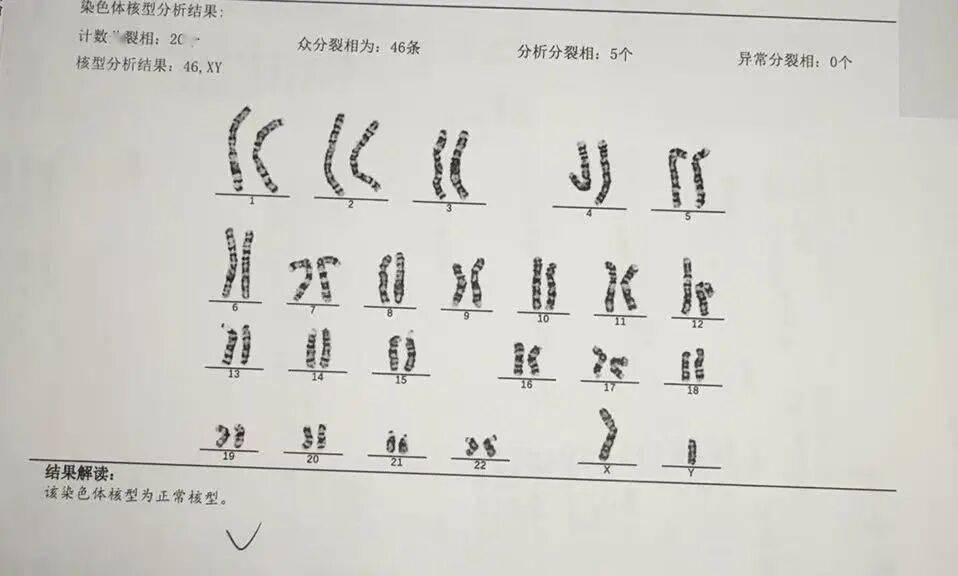 染色体核型分析结果:
计数 裂相: 20 众分裂相为: 46条 分析分裂相: 5个 异常分裂相: 0个
核型分析结果: 46,XY
1 2 3 4 5
6 7 8 9 10 11 12
13 14 15 16 17 18
19 20 21 22 X Y
结果解读:
该染色体核型为正常核型。